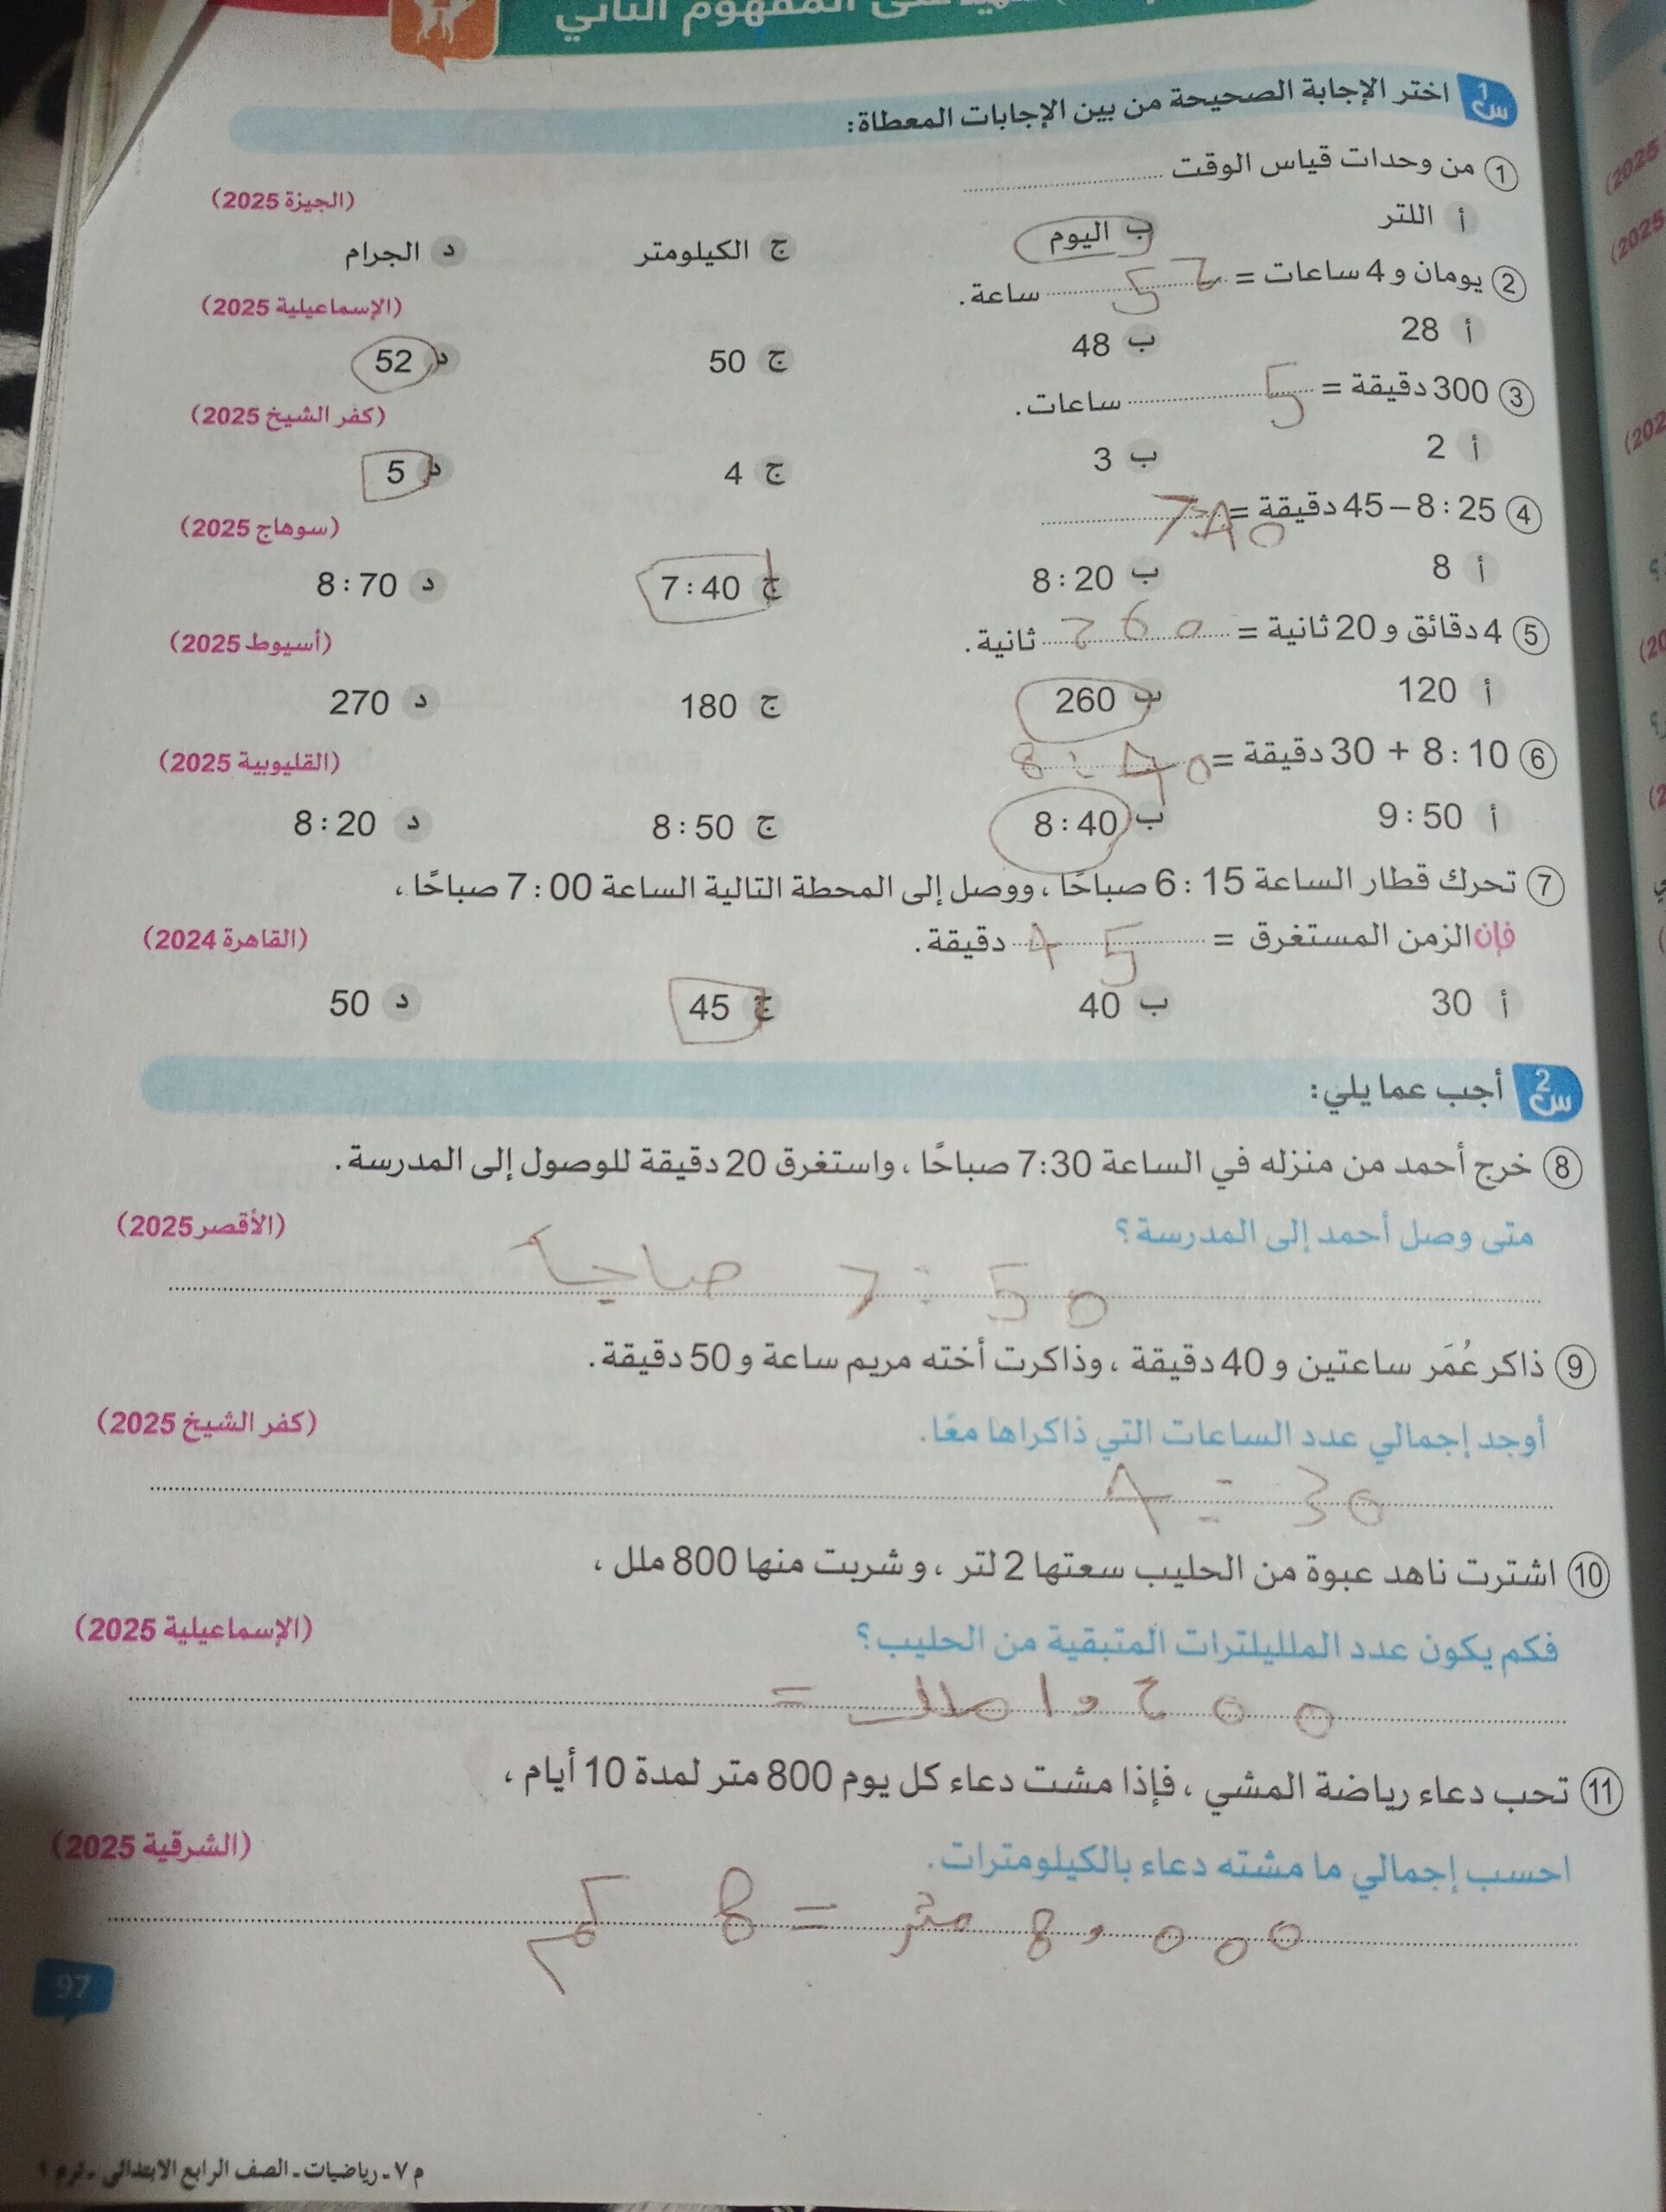 المفهوم الثاني
س1 اختر الإجابة الصحيحة من بين الإجابات المعطاة:
1 من وحدات قياس الوقت ........
(الجيزة 2025)
أ اللتر ب اليوم ج الكيلومتر د الجرام
2 يومان و 4 ساعات = 52 ساعة.
(الإسماعيلية 2025)
أ 28 ب 48 ج 50 د 52
3 300 دقيقة = 5 ساعات.
(كفر الشيخ 2025)
أ 2 ب 3 ج 4 د 5
4 8:25 – 45 دقيقة = 7:40
(سوهاج 2025)
أ 8 ب 8:20 ج 7:40 د 8:70
5 4 دقائق و 20 ثانية = 260 ثانية.
(أسيوط 2025)
أ 120 ب 260 ج 180 د 270
6 8:10 + 30 دقيقة = 8:40
(القليوبية 2025)
أ 9:50 ب 8:40 ج 8:50 د 8:20
7 تحرك قطار الساعة 6:15 صباحًا، ووصل إلى المحطة التالية الساعة 7:00 صباحًا،
فإن الزمن المستغرق = 45 دقيقة.
(القاهرة 2024)
أ 30 ب 40 ج 45 د 50
س2 أجب عما يلي:
8 خرج أحمد من منزله في الساعة 7:30 صباحًا، واستغرق 20 دقيقة للوصول إلى المدرسة.
متى وصل أحمد إلى المدرسة؟
(الأقصر 2025)
7:50 صباحاً
9 ذاكر عُمَر ساعتين و 40 دقيقة، وذاكرت أخته مريم ساعة و 50 دقيقة.
أوجد إجمالي عدد الساعات التي ذاكراها معًا.
(كفر الشيخ 2025)
4:30
10 اشترت ناهد عبوة من الحليب سعتها 2 لتر، وشربت منها 800 ملل،
فكم يكون عدد الملليلترات المتبقية من الحليب؟
(الإسماعيلية 2025)
= 1,200 ملل
11 تحب دعاء رياضة المشي، فإذا مشت دعاء كل يوم 800 متر لمدة 10 أيام،
احسب إجمالي ما مشته دعاء بالكيلومترات.
(الشرقية 2025)
8,000 متر = 8 كم
97
م ٧ - رياضيات - الصف الرابع الابتدائي - ترم